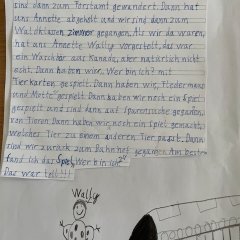 sind dann zum Forstamt gewandert. Dann hat
uns Annette abgeholt und wir sind dann zum
Waldklassenzimmer gegangen. Als wir da waren,
hat uns Annette Wally vorgestellt, das war
ein Waschbär aus Kanada, aber natürlich nicht
echt. Dann haben wir „Wer bin ich? mit
Tierkarten gespielt. Dann haben wir „Fledermaus
und Motte" gespielt. Dann haben wir noch ein Spiel
gespielt und sind dann auf Spurensuche gegangen,
von Tieren. Dann haben wir noch ein Spiel gemacht,
welches Tier zu einem anderen Tier passt. Dann
sind wir zurück zum Bahnhof gegangen. Am besten
fand ich das Spiel „Wer bin ich?"
Das war toll!!!
Wally